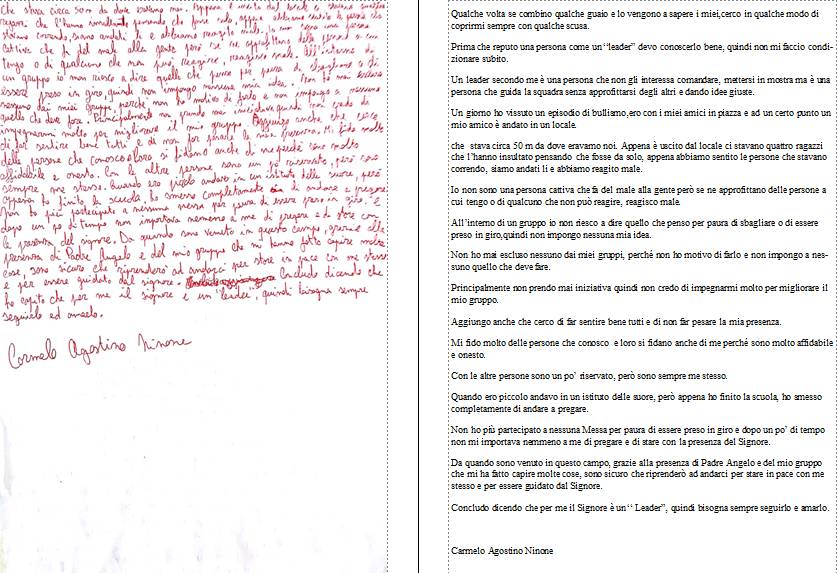 che stava circa 50m da dove eravamo noi. Appena è uscito dal locale ci stavano quattro
ragazzi che l'hanno insultato pensando che fosse solo, appena abbiamo sentito le persone che
stavano correndo, siamo andati lì e abbiamo reagito male. Io non sono una persona
cattiva che fa del male alla gente però se ne approfittano delle persone a cui
tengo o di qualcuno che non può reagire, reagisco male. All'interno di
un gruppo io non riesco a dire quello che penso per paura di sbagliare o di
essere preso in giro, quindi non impongo nessuna mia idea. Non ho mai escluso
nessuno dai miei gruppi, perché non ho motivo di farlo e non impongo a nessuno
quello che deve fare. Principalmente non prendo mai iniziativa, quindi non credo di
impegnarmi molto per migliorare il mio gruppo. Aggiungo anche che cerco
di far sentire bene tutti e di non far pesare la mia presenza. Mi fido molto
delle persone che conosco e loro si fidano anche di me perché sono molto
affidabile e onesto. Con le altre persone sono un po' riservato, però sono
sempre me stesso. Quando ero piccolo andavo in un istituto delle suore, però
appena ho finito la scuola, ho smesso completamente di andare a pregare.
Non ho più partecipato a nessuna messa per paura di essere preso in giro e
dopo un po' di tempo non importava nemmeno a me di pregare e di stare con
la presenza del signore. Da quando sono venuto in questo campo, grazie alla
presenza di Padre Angelo e del mio gruppo che mi hanno fatto capire molte
cose, sono sicuro che riprenderò ad andarci per stare in pace con me stesso
e per essere guidato dal signore. Concludo dicendo che
per me il signore è un "leader", quindi bisogna sempre
seguirlo ed amarlo.
Carmelo Agostino Ninone
Qualche volta se combino qualche guaio e lo vengono a sapere i miei,cerco in qualche modo di
coprirmi sempre con qualche scusa.
Prima che reputo una persona come un “leader” devo conoscerlo bene, quindi non mi faccio condi-
zionare subito.
Un leader secondo me è una persona che non gli interessa comandare, mettersi in mostra ma è una
persona che guida la squadra senza approfittarsi degli altri e dando idee giuste.
Un giorno ho vissuto un episodio di bullismo,ero con i miei amici in piazza e ad un certo punto un
mio amico è andato in un locale.
che stava circa 50 m da dove eravamo noi. Appena è uscito dal locale ci stavano quattro ragazzi
che l’hanno insultato pensando che fosse da solo, appena abbiamo sentito le persone che stavano
correndo, siamo andati li e abbiamo reagito male.
Io non sono una persona cattiva che fa del male alla gente però se ne approfittano delle persone a
cui tengo o di qualcuno che non può reagire, reagisco male.
All’interno di un gruppo io non riesco a dire quello che penso per paura di sbagliare o di essere
preso in giro,quindi non impongo nessuna mia idea.
Non ho mai escluso nessuno dai miei gruppi, perché non ho motivo di farlo e non impongo a nes-
suno quello che deve fare.
Principalmente non prendo mai iniziativa quindi non credo di impegnarmi molto per migliorare il
mio gruppo.
Aggiungo anche che cerco di far sentire bene tutti e di non far pesare la mia presenza.
Mi fido molto delle persone che conosco e loro si fidano anche di me perché sono molto affidabile
e onesto.
Con le altre persone sono un po’ riservato, però sono sempre me stesso.
Quando ero piccolo andavo in un istituto delle suore, però appena ho finito la scuola, ho smesso
completamente di andare a pregare.
Non ho più partecipato a nessuna Messa per paura di essere preso in giro e dopo un po’ di tempo
non mi importava nemmeno a me di pregare e di stare con la presenza del Signore.
Da quando sono venuto in questo campo, grazie alla presenza di Padre Angelo e del mio gruppo
che mi ha fatto capire molte cose, sono sicuro che riprenderò ad andarci per stare in pace con me
stesso e per essere guidato dal Signore.
Concludo dicendo che per me il Signore è un “ Leader”, quindi bisogna sempre seguirlo e amarlo.
Carmelo Agostino Ninone